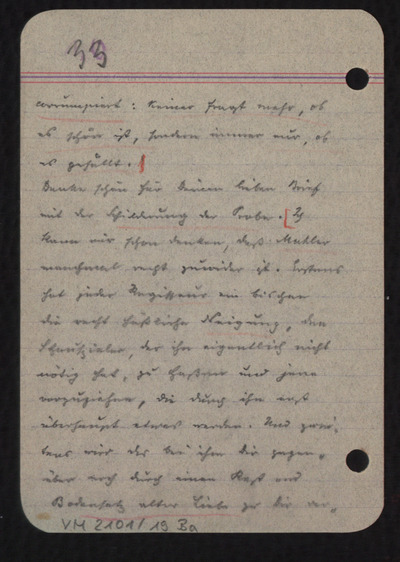 33
corrumpiert: Keiner fragt mehr, ob
es schön ist, sondern immer nur, ob
es gefällt.
Danke schön für Deinen lieben Brief
mit der Schilderung der Probe. [Ich
kann mir schon denken, daß Mahler
manchmal recht zuwider ist. Erstens
hat jeder Regisseur ein bischen
die recht häßliche Neigung, den
Schauspieler, der ihn eigentlich nicht
nötig hat, zu hassen und jene
vorzuziehen, die durch ihn erst
überhaupt etwas werden. Und zwei-
tens wird das bei ihm dir gegen-
über noch durch einen Rest und
Bodensatz alter Liebe zu dir ver-
VM 2101/19 Ba